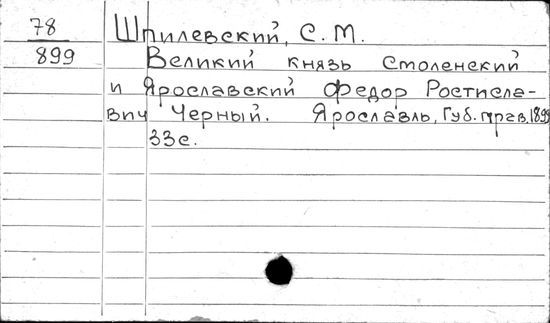 78 Шпилевский, С. М.
899 Великий князь Смоленский
и Ярославский Федор Ростисла-
вич Черный. Ярославль, Губ. прав, 1899
33с.